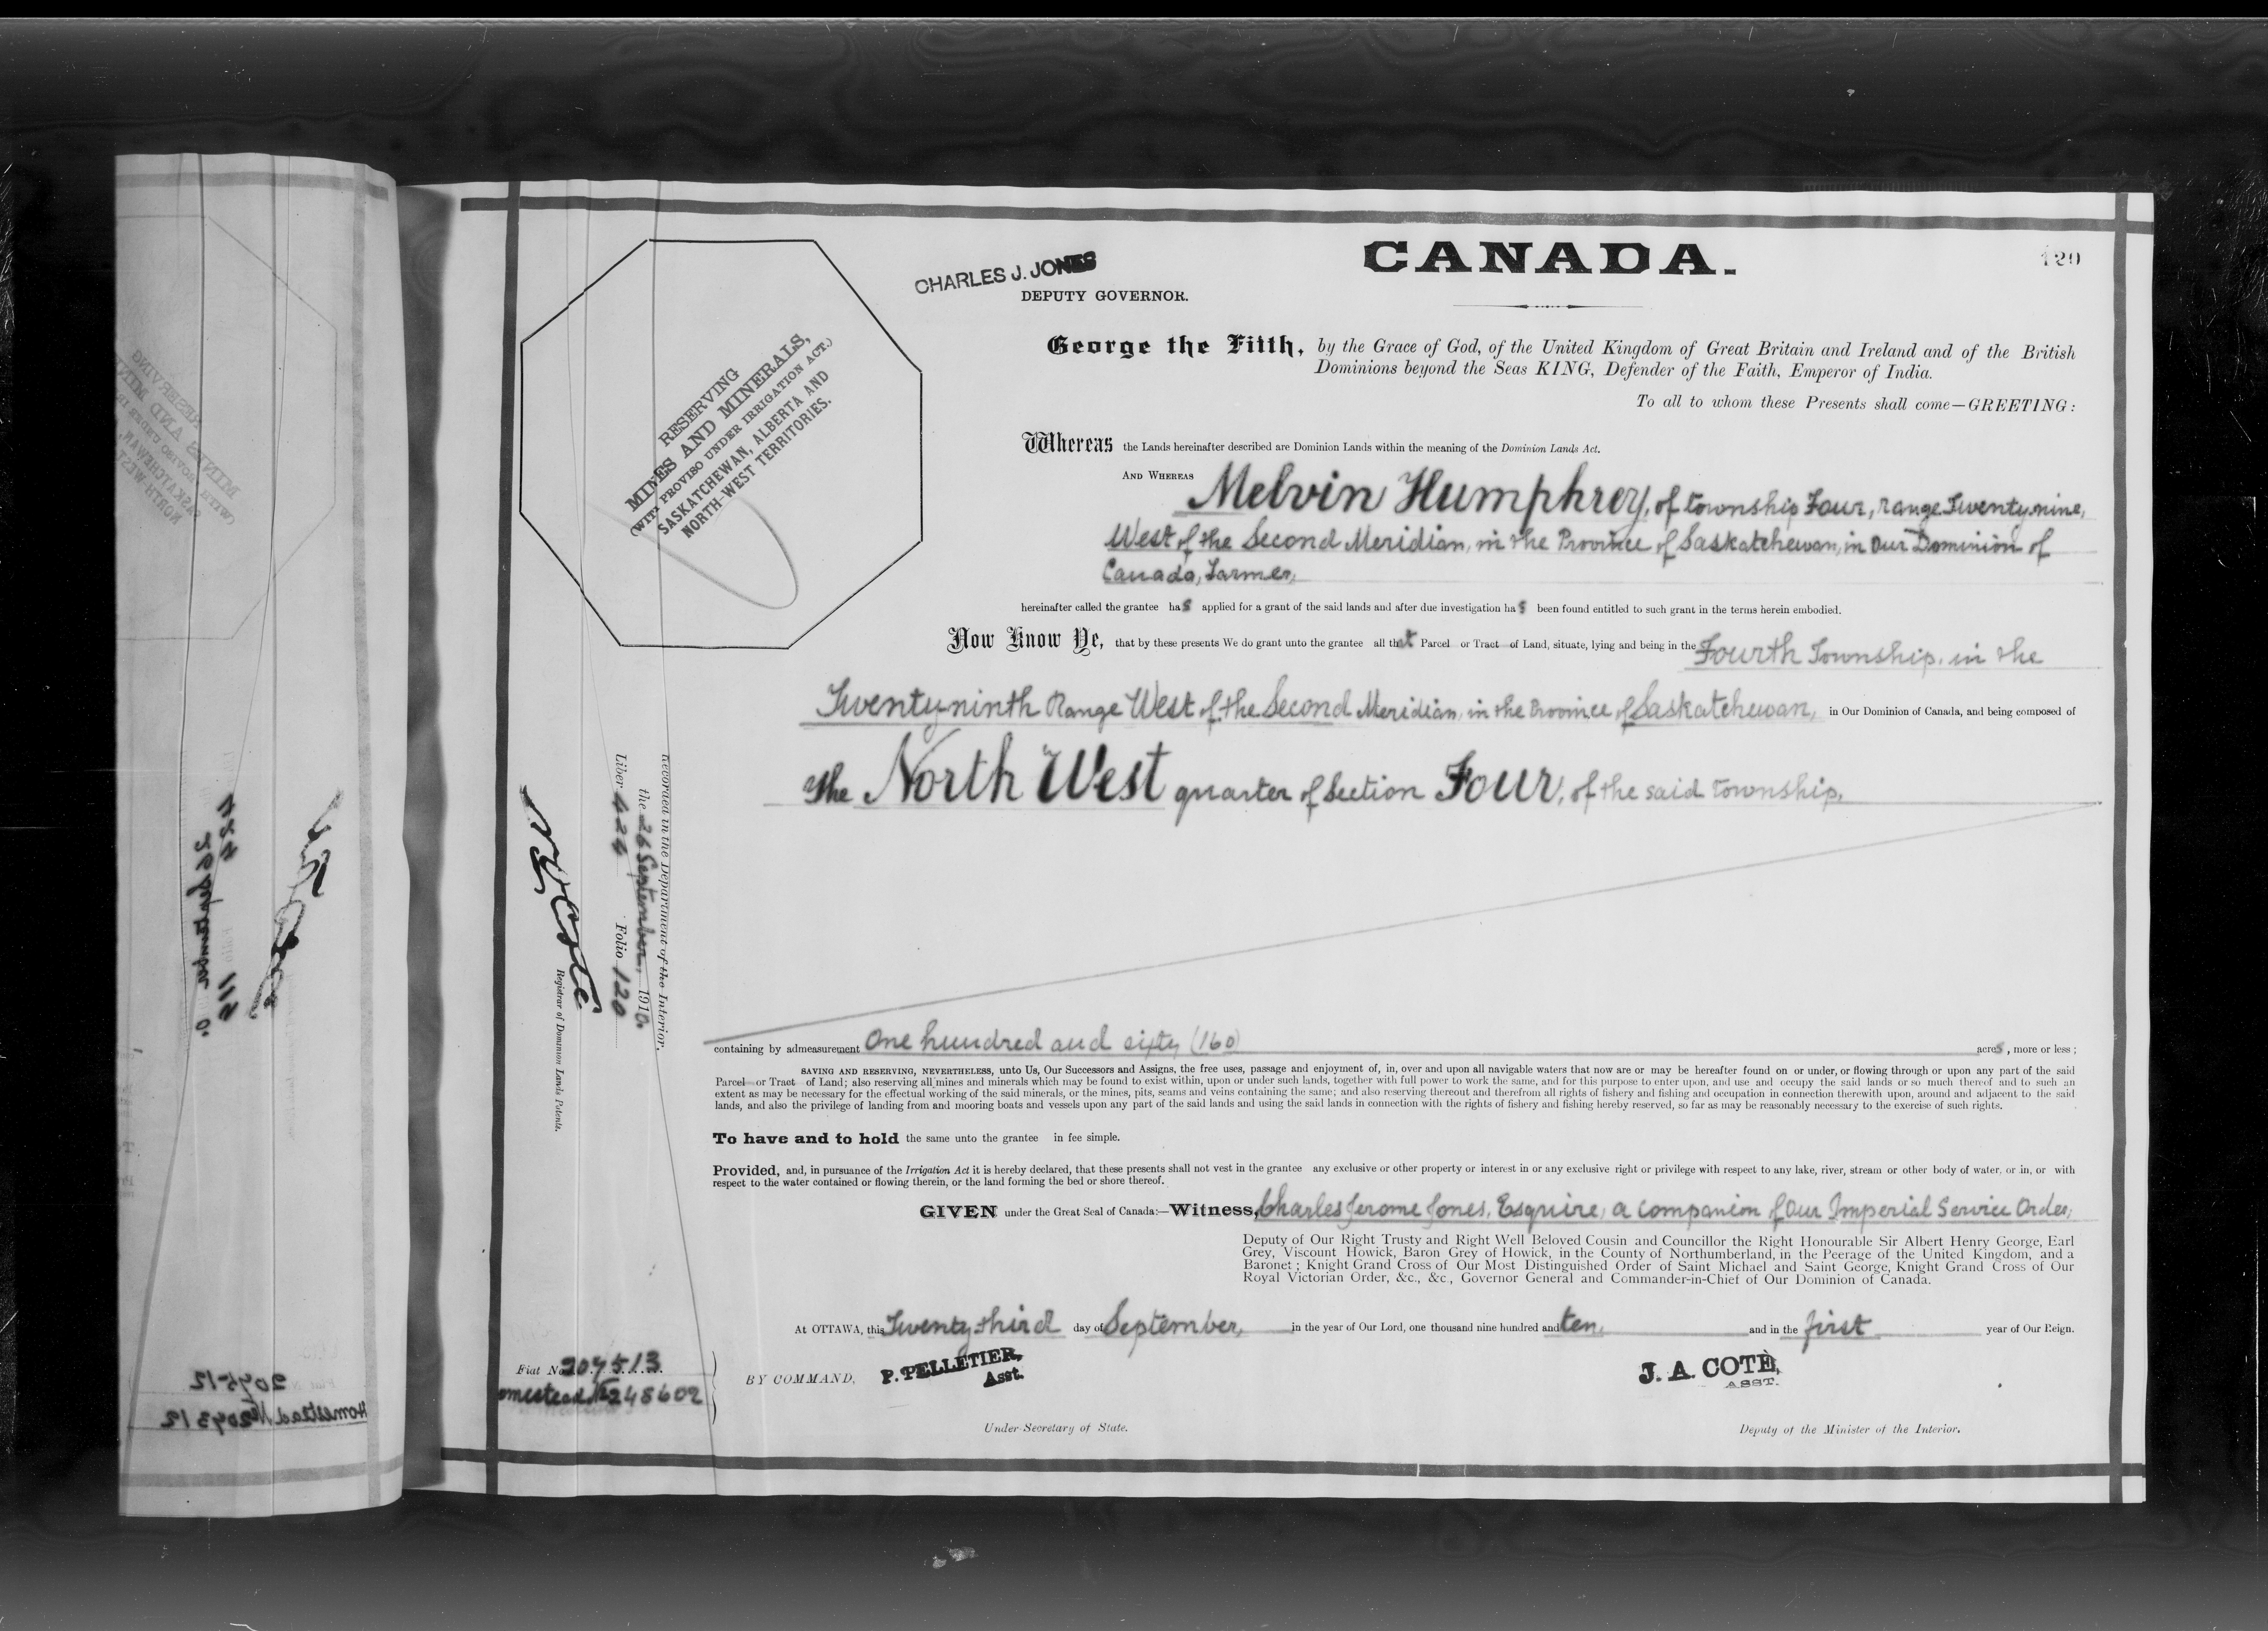 CANADA.
120
CHARLES J. JONES
DEPUTY GOVERNOR.
RESERVING
MINES AND MINERALS,
(WITH PROVISO UNDER IRRIGATION ACT.)
SASKATCHEWAN, ALBERTA AND
NORTH-WEST TERRITORIES.
George the Fifth, by the Grace of God, of the United Kingdom of Great Britain and Ireland and of the British
Dominions beyond the Seas KING, Defender of the Faith, Emperor of India.
To all to whom these Presents shall come—GREETING:
Whereas the Lands hereinafter described are Dominion Lands within the meaning of the Dominion Lands Act.
AND WHEREAS Melvin Humphrey, of township Four, range Twenty-nine,
West of the Second Meridian, in the Province of Saskatchewan, in Our Dominion of
Canada, Farmer,
hereinafter called the grantee has applied for a grant of the said lands and after due investigation has been found entitled to such grant in the terms herein embodied.
Now Know Ye, that by these presents We do grant unto the grantee all that Parcel or Tract of Land, situate, lying and being in the Fourth Township, in the
Twenty-ninth Range West of the Second Meridian, in the Province of Saskatchewan, in Our Dominion of Canada, and being composed of
The North West quarter of Section Four, of the said township,
containing by admeasurement One hundred and sixty (160) acres, more or less;
SAVING AND RESERVING, NEVERTHELESS, unto Us, Our Successors and Assigns, the free uses, passage and enjoyment of, in, over and upon all navigable waters that now are or may be hereafter found on or under, or flowing through or upon any part of the said
Parcel or Tract of Land; also reserving all mines and minerals which may be found to exist within, upon or under such lands, together with full power to work the same, and for this purpose to enter upon, and use and occupy the said lands or so much thereof and to such an
extent as may be necessary for the effectual working of the said minerals, or the mines, pits, seams and veins containing the same; and also reserving thereout and therefrom all rights of fishery and fishing and occupation in connection therewith upon, around and adjacent to the said
lands, and also the privilege of landing from and mooring boats and vessels upon any part of the said lands and using the said lands in connection with the rights of fishery and fishing hereby reserved, so far as may be reasonably necessary to the exercise of such rights.
To have and to hold the same unto the grantee in fee simple.
Provided, and, in pursuance of the Irrigation Act it is hereby declared, that these presents shall not vest in the grantee any exclusive or other property or interest in or any exclusive right or privilege with respect to any lake, river, stream or other body of water, or in, or with
respect to the water contained or flowing therein, or the land forming the bed or shore thereof.
GIVEN under the Great Seal of Canada:—Witness, Charles Jerome Jones, Esquire, a companion of Our Imperial Service Order,
Deputy of Our Right Trusty and Right Well Beloved Cousin and Councillor the Right Honourable Sir Albert Henry George, Earl
Grey, Viscount Howick, Baron Grey of Howick, in the County of Northumberland, in the Peerage of the United Kingdom, and a
Baronet; Knight Grand Cross of Our Most Distinguished Order of Saint Michael and Saint George, Knight Grand Cross of Our
Royal Victorian Order, &c., &c., Governor General and Commander-in-Chief of Our Dominion of Canada.
At OTTAWA, this Twenty-third day of September, in the year of Our Lord, one thousand nine hundred and ten, and in the first year of Our Reign.
BY COMMAND, P. PELLETIER,
Asst.
Under-Secretary of State.
J. A. COTÈ,
ASST.
Deputy of the Minister of the Interior.
Recorded in the Department of the Interior,
the 26 September, 1910.
Liber 424 Folio 120
N. O. Coté
Registrar of Dominion Lands Patents.
Fiat No 207513
omestead No 248602